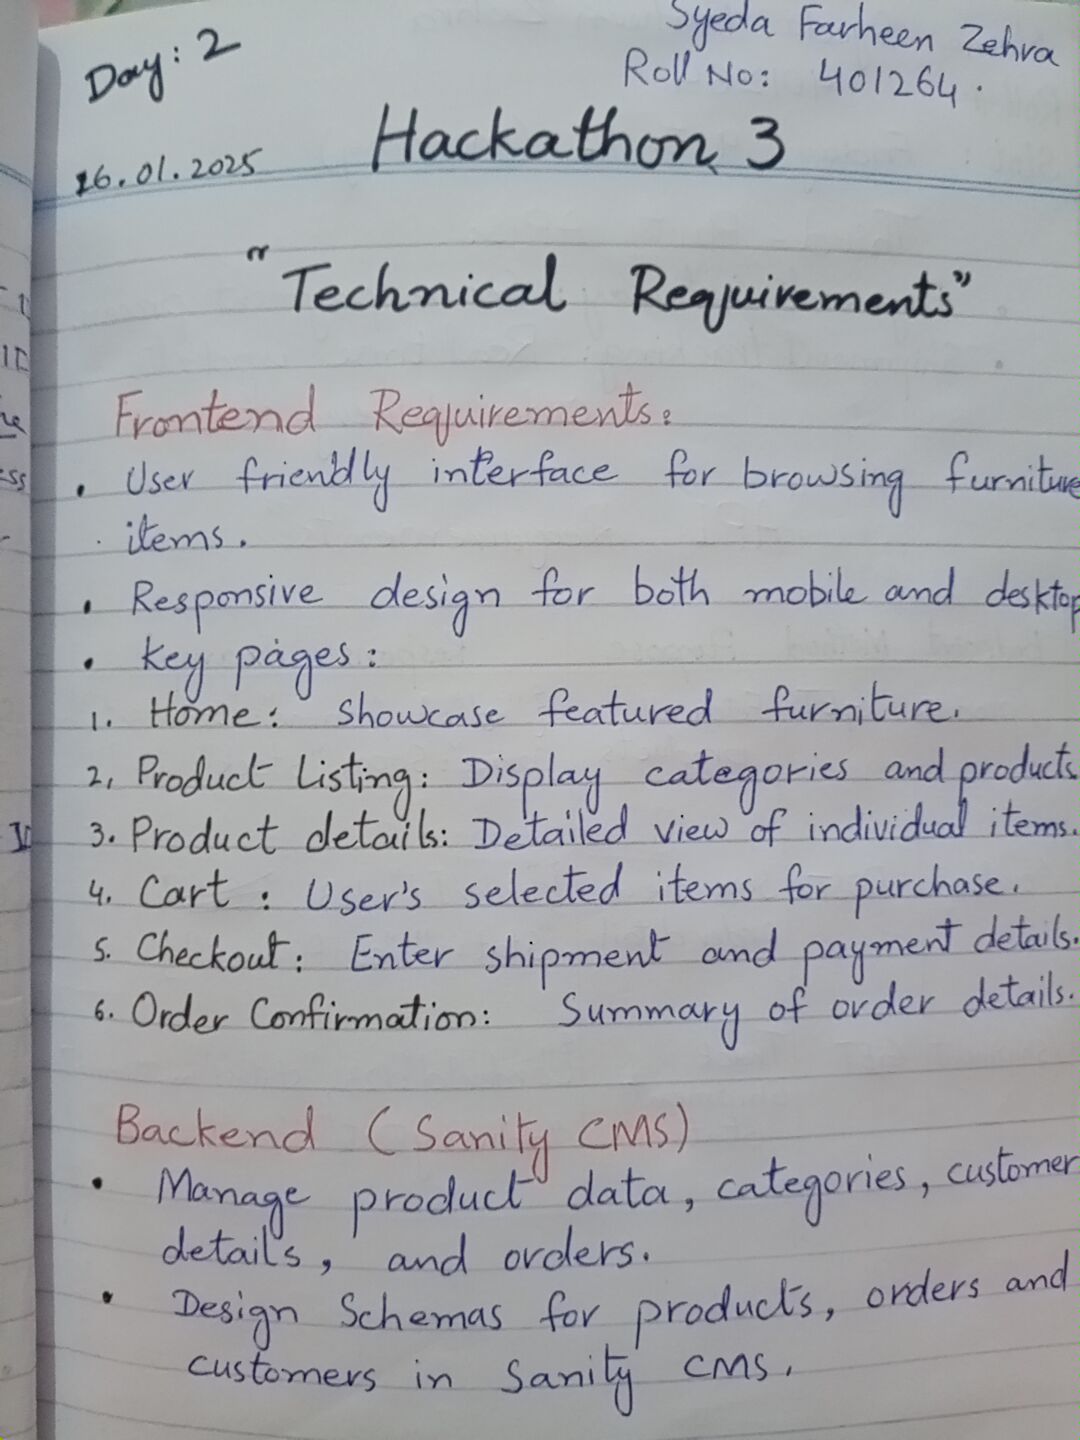 Day: 2
Syeda Farheen Zehra
Roll No: 401264.
Hackathon 3
16.01.2025
"Technical Requirements"
Frontend Requirements:
• User friendly interface for browsing furniture
items.
• Responsive design for both mobile and desktop
• Key pages:
1. Home: Showcase featured furniture.
2, Product Listing: Display categories and products
3. Product details: Detailed view of individual items.
4. Cart : User's selected items for purchase.
5. Checkout: Enter shipment and payment details.
6. Order Confirmation: Summary of order details.
Backend (Sanity CMS)
• Manage product data, categories, customer
details, and orders.
• Design Schemas for products, orders and
customers in Sanity CMS.